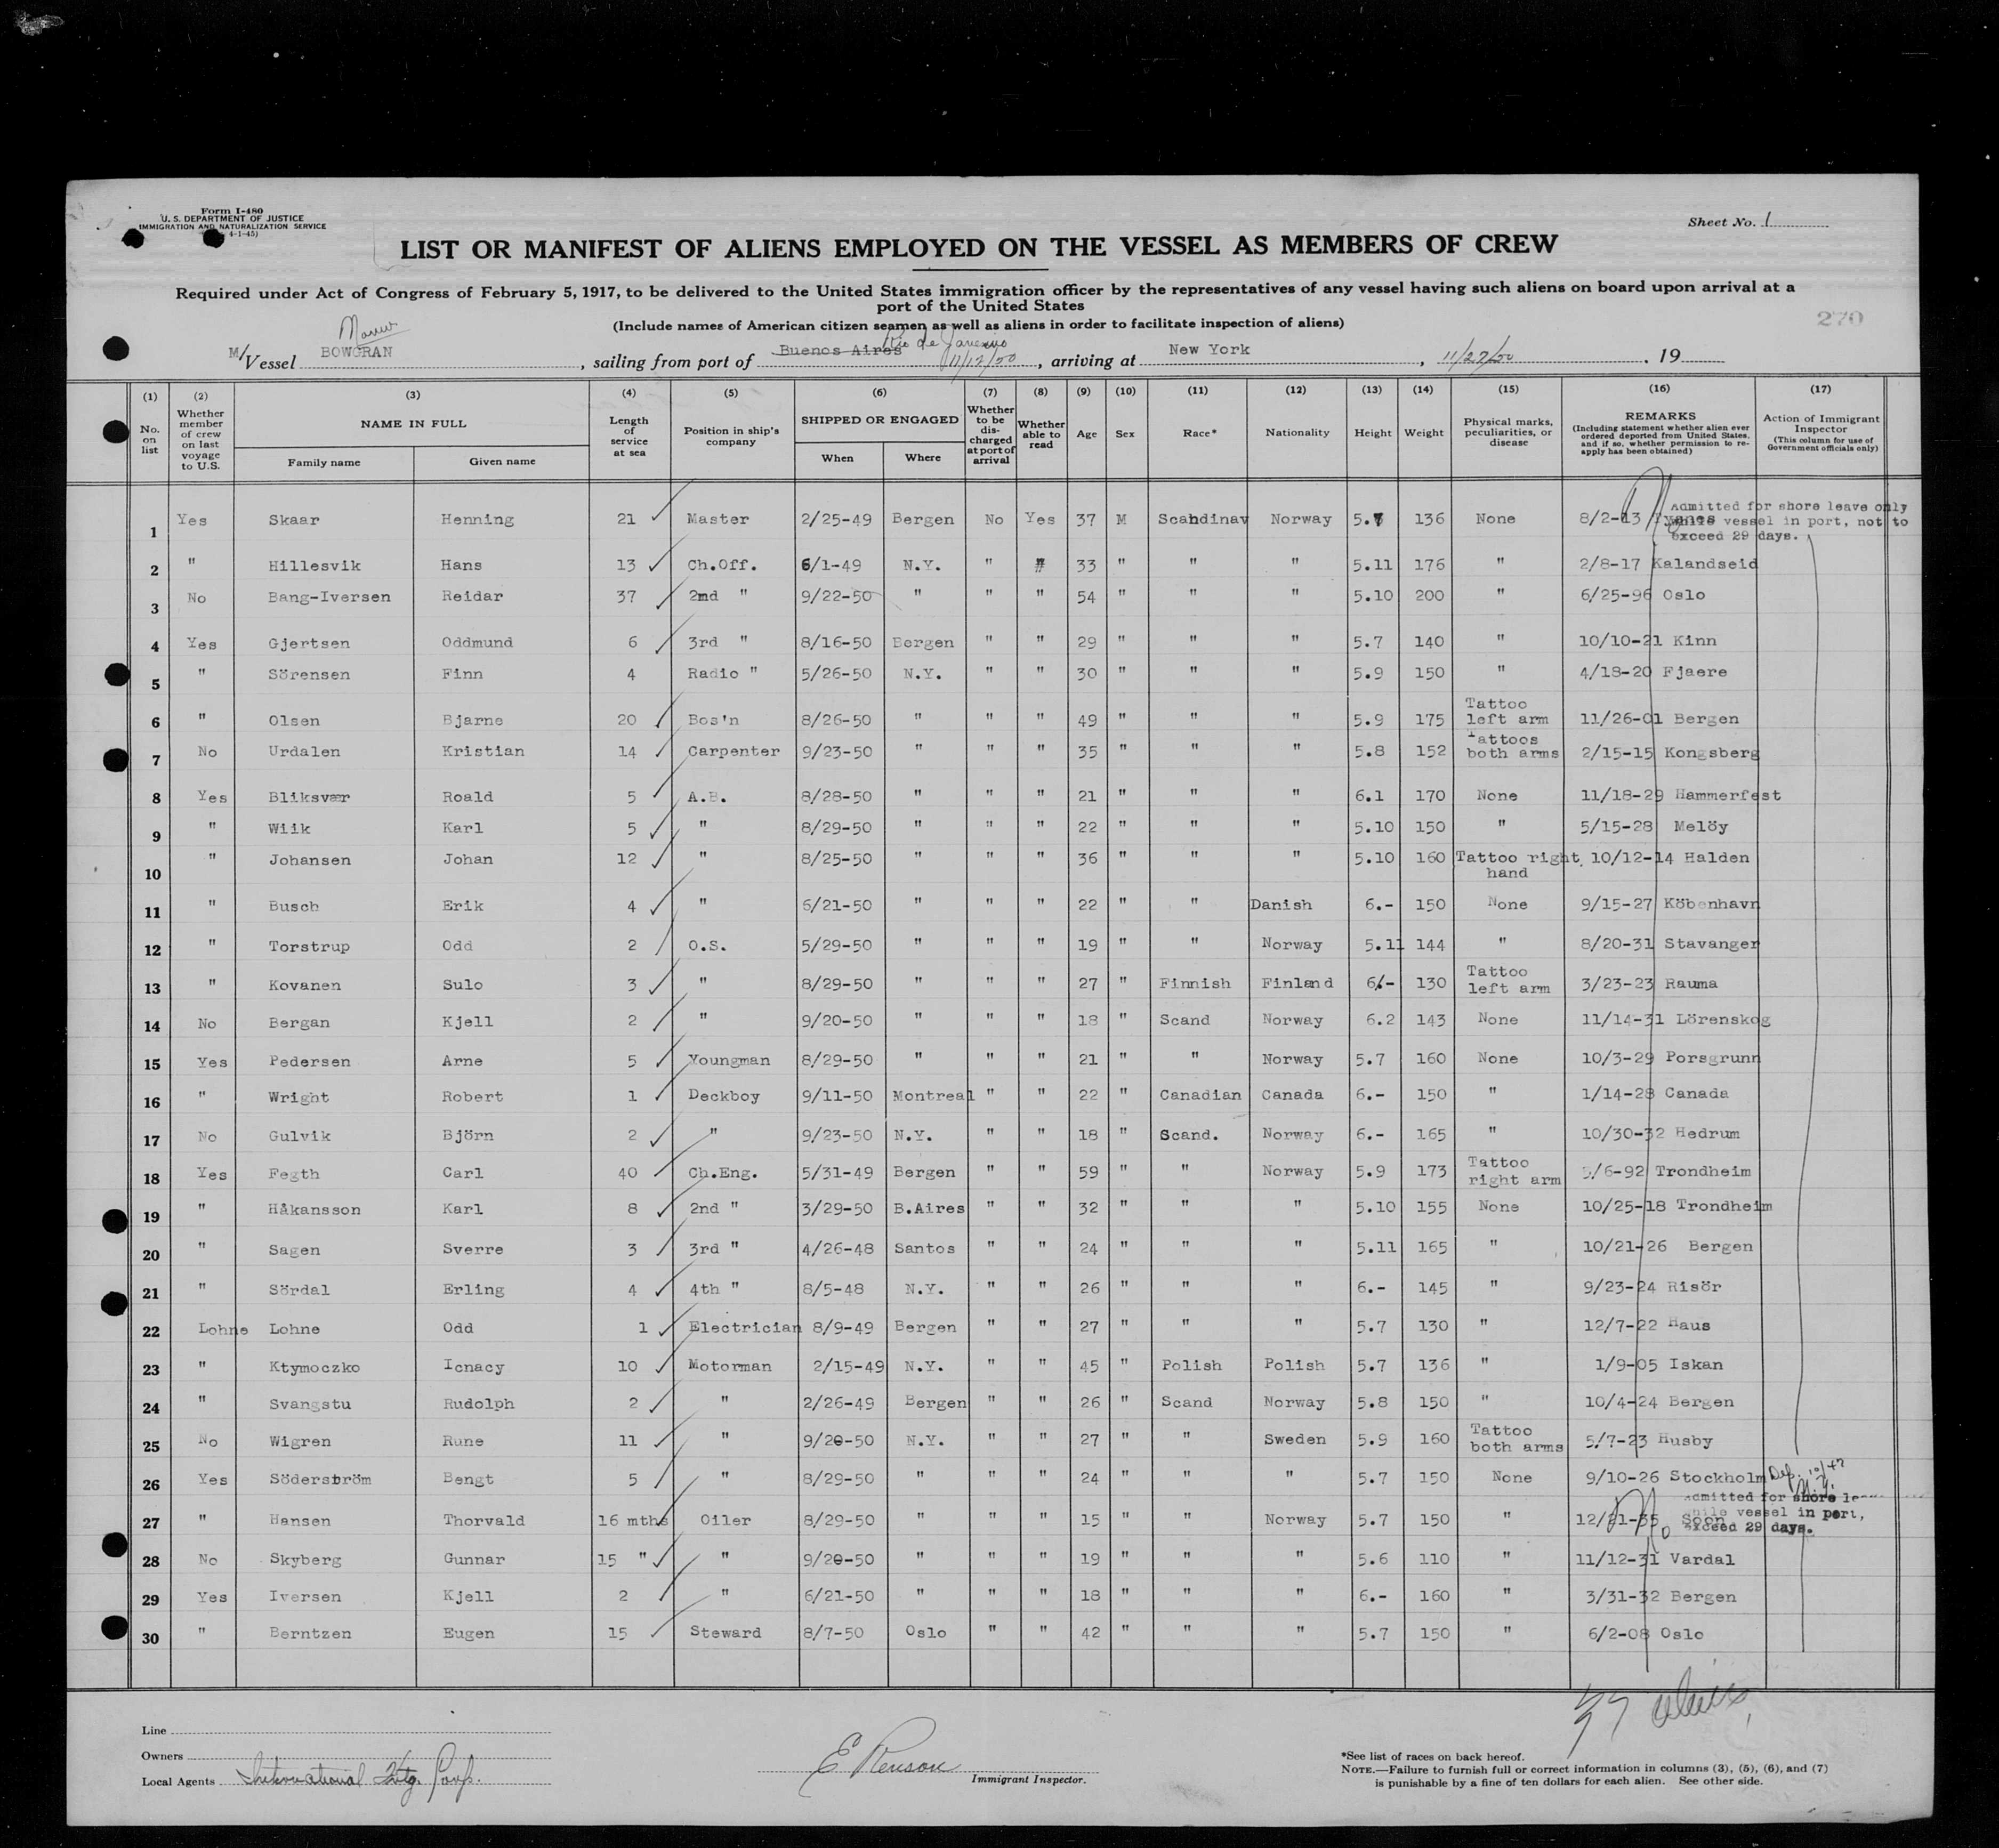 Form I-480
U. S. DEPARTMENT OF JUSTICE
IMMIGRATION AND NATURALIZATION SERVICE
4-1-45)
Sheet No. 1
LIST OR MANIFEST OF ALIENS EMPLOYED ON THE VESSEL AS MEMBERS OF CREW
Required under Act of Congress of February 5, 1917, to be delivered to the United States immigration officer by the representatives of any vessel having such aliens on board upon arrival at a
port of the United States
(Include names of American citizen seamen as well as aliens in order to facilitate inspection of aliens)
270
M/Vessel BOWGRAN, sailing from port of Buenos Aires Rio de Janeiro 11/12/50, arriving at New York, 11/27/50, 19
(1) (2) (3) (4) (5) (6) (7) (8) (9) (10) (11) (12) (13) (14) (15) (16) (17)
No. on list Whether member of crew on last voyage to U.S. NAME IN FULL Family name Given name Length of service at sea Position in ship's company SHIPPED OR ENGAGED When Where Whether to be discharged at port of arrival Whether able to read Age Sex Race* Nationality Height Weight Physical marks, peculiarities, or disease REMARKS (Including statement whether alien ever ordered deported from United States, and if so, whether permission to re-apply has been obtained) Action of Immigrant Inspector (This column for use of Government officials only)
Admitted for shore leave only
while vessel in port, not to
exceed 29 days.
1 Yes Skaar Henning 21 Master 2/25-49 Bergen No Yes 37 M Scandinav Norway 5.7 136 None 8/2-13
2 " Hillesvik Hans 13 Ch.Off. 6/1-49 N.Y. " " 33 " " " 5.11 176 " 2/8-17 Kalandseid
3 No Bang-Iversen Reidar 37 2nd " 9/22-50 " " " 54 " " " 5.10 200 " 6/25-96 Oslo
4 Yes Gjertsen Oddmund 6 3rd " 8/16-50 Bergen " " 29 " " " 5.7 140 " 10/10-21 Kinn
5 " Sörensen Finn 4 Radio " 5/26-50 N.Y. " " 30 " " " 5.9 150 " 4/18-20 Fjaere
6 " Olsen Bjarne 20 Bos'n 8/26-50 " " " 49 " " " 5.9 175 Tattoo left arm 11/26-01 Bergen
7 No Urdalen Kristian 14 Carpenter 9/23-50 " " " 35 " " " 5.8 152 Tattoos both arms 2/15-15 Kongsberg
8 Yes Bliksvær Roald 5 A.B. 8/28-50 " " " 21 " " " 6.1 170 None 11/18-29 Hammerfest
9 " Wiik Karl 5 " 8/29-50 " " " 22 " " " 5.10 150 " 5/15-28 Melöy
10 " Johansen Johan 12 " 8/25-50 " " " 36 " " " 5.10 160 Tattoo right hand 10/12-14 Halden
11 " Busch Erik 4 " 6/21-50 " " " 22 " " Danish 6.- 150 None 9/15-27 Köbenhavn
12 " Torstrup Odd 2 O.S. 5/29-50 " " " 19 " " Norway 5.11 144 " 8/20-31 Stavanger
13 " Kovanen Sulo 3 " 8/29-50 " " " 27 " Finnish Finland 6.- 130 Tattoo left arm 3/23-23 Rauma
14 No Bergan Kjell 2 " 9/20-50 " " " 18 " Scand Norway 6.2 143 None 11/14-31 Lörenskog
15 Yes Pedersen Arne 5 Youngman 8/29-50 " " " 21 " " Norway 5.7 160 None 10/3-29 Porsgrunn
16 " Wright Robert 1 Deckboy 9/11-50 Montreal " " 22 " Canadian Canada 6.- 150 " 1/14-28 Canada
17 No Gulvik Björn 2 " 9/23-50 N.Y. " " 18 " Scand. Norway 6.- 165 " 10/30-32 Hedrum
18 Yes Fegth Carl 40 Ch.Eng. 5/31-49 Bergen " " 59 " " Norway 5.9 173 Tattoo right arm 5/6-92 Trondheim
19 " Håkansson Karl 8 2nd " 3/29-50 B.Aires " " 32 " " " 5.10 155 None 10/25-18 Trondheim
20 " Sagen Sverre 3 3rd " 4/26-48 Santos " " 24 " " " 5.11 165 " 10/21-26 Bergen
21 " Sördal Erling 4 4th " 8/5-48 N.Y. " " 26 " " " 6.- 145 " 9/23-24 Risör
22 Lohne Lohne Odd 1 Electrician 8/9-49 Bergen " " 27 " " " 5.7 130 " 12/7-22 Haus
23 " Ktymoczko Icnacy 10 Motorman 2/15-49 N.Y. " " 45 " Polish Polish 5.7 136 " 1/9-05 Iskan
24 " Svangstu Rudolph 2 " 2/26-49 Bergen " " 26 " Scand Norway 5.8 150 " 10/4-24 Bergen
25 No Wigren Rune 11 " 9/20-50 N.Y. " " 27 " " Sweden 5.9 160 Tattoo both arms 5/7-23 Husby
26 Yes Söderström Bengt 5 " 8/29-50 " " " 24 " " " 5.7 150 None 9/10-26 Stockholm
Admitted for shore
while vessel in port,
exceed 29 days.
27 " Hansen Thorvald 16 mths Oiler 8/29-50 " " " 15 " " Norway 5.7 150 " 12/21-35 Soon
28 No Skyberg Gunnar 15 " " 9/20-50 " " " 19 " " " 5.6 110 " 11/12-31 Vardal
29 Yes Iversen Kjell 2 " 6/21-50 " " " 18 " " " 6.- 160 " 3/31-32 Bergen
30 " Berntzen Eugen 15 Steward 8/7-50 Oslo " " 42 " " " 5.7 150 " 6/2-08 Oslo
Line
Owners
Local Agents International Corp.
E Renson
Immigrant Inspector.
*See list of races on back hereof.
NOTE.—Failure to furnish full or correct information in columns (3), (5), (6), and (7)
is punishable by a fine of ten dollars for each alien. See other side.